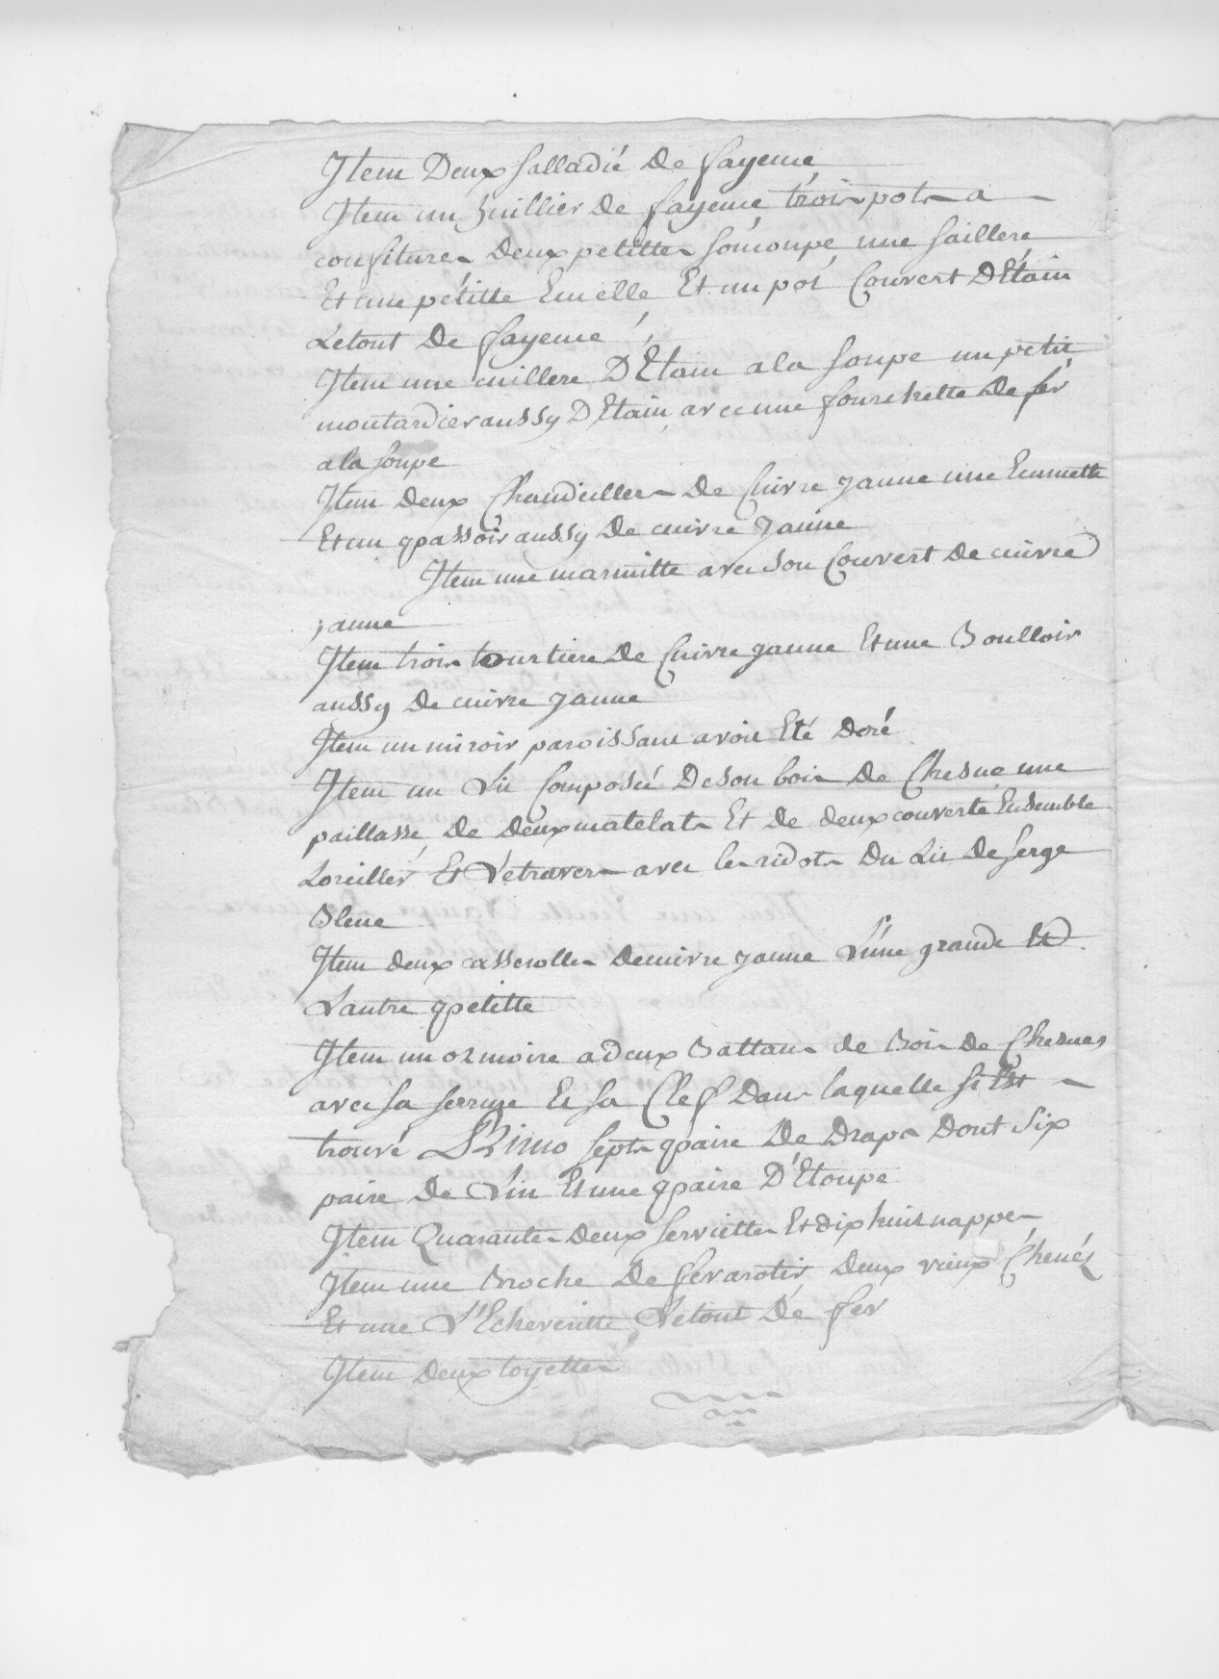 Item Deux salladié de fayence
Item un huillier de fayence trois pots a
confitures deux petittes soucoupe une saillere
Et une pétitte Ecuelle Et un pot Couvert D'Etain
Le tout de fayence
Item une cuillere D'Etain a la soupe un petit
moutardier aussy D'Etain avec une fourchette de fér
a la soupe
Item deux Chandellier de Cuivre jaune une Ecumette
Et un passoir aussy de cuivre jaune
Item une marmitte avec son Couvert de cuivre
jaune
Item trois tourtiere de Cuivre jaune Et une Boulloir
aussy de cuivre jaune
Item un miroir paroissant avoir Eté Doré
Item un Lit Composé De son bois de Chesne une
paillasse, de deux matelats Et de deux couverte Ensemble
Loreiller Et Le travers avec les ridots du Lit de serge
Bleue
Item deux casserolles de cuivre jaune L'une grande Et
L'autre petitte
Item un ormoire a deux Battans de Bois de Chesnes
avec sa serrure Et sa Clef Dans laquelle s'i Est
trouvé Primo sept paire de Draps Dont six
paire de Lin Et une paire D'Etoupe
Item Quarante deux serviettes Et dix huit nappes
Item une Broche de fer a rotir deux vieux Chenéz
Et une L'Echevritte Le tout de fer
Item deux toyettes